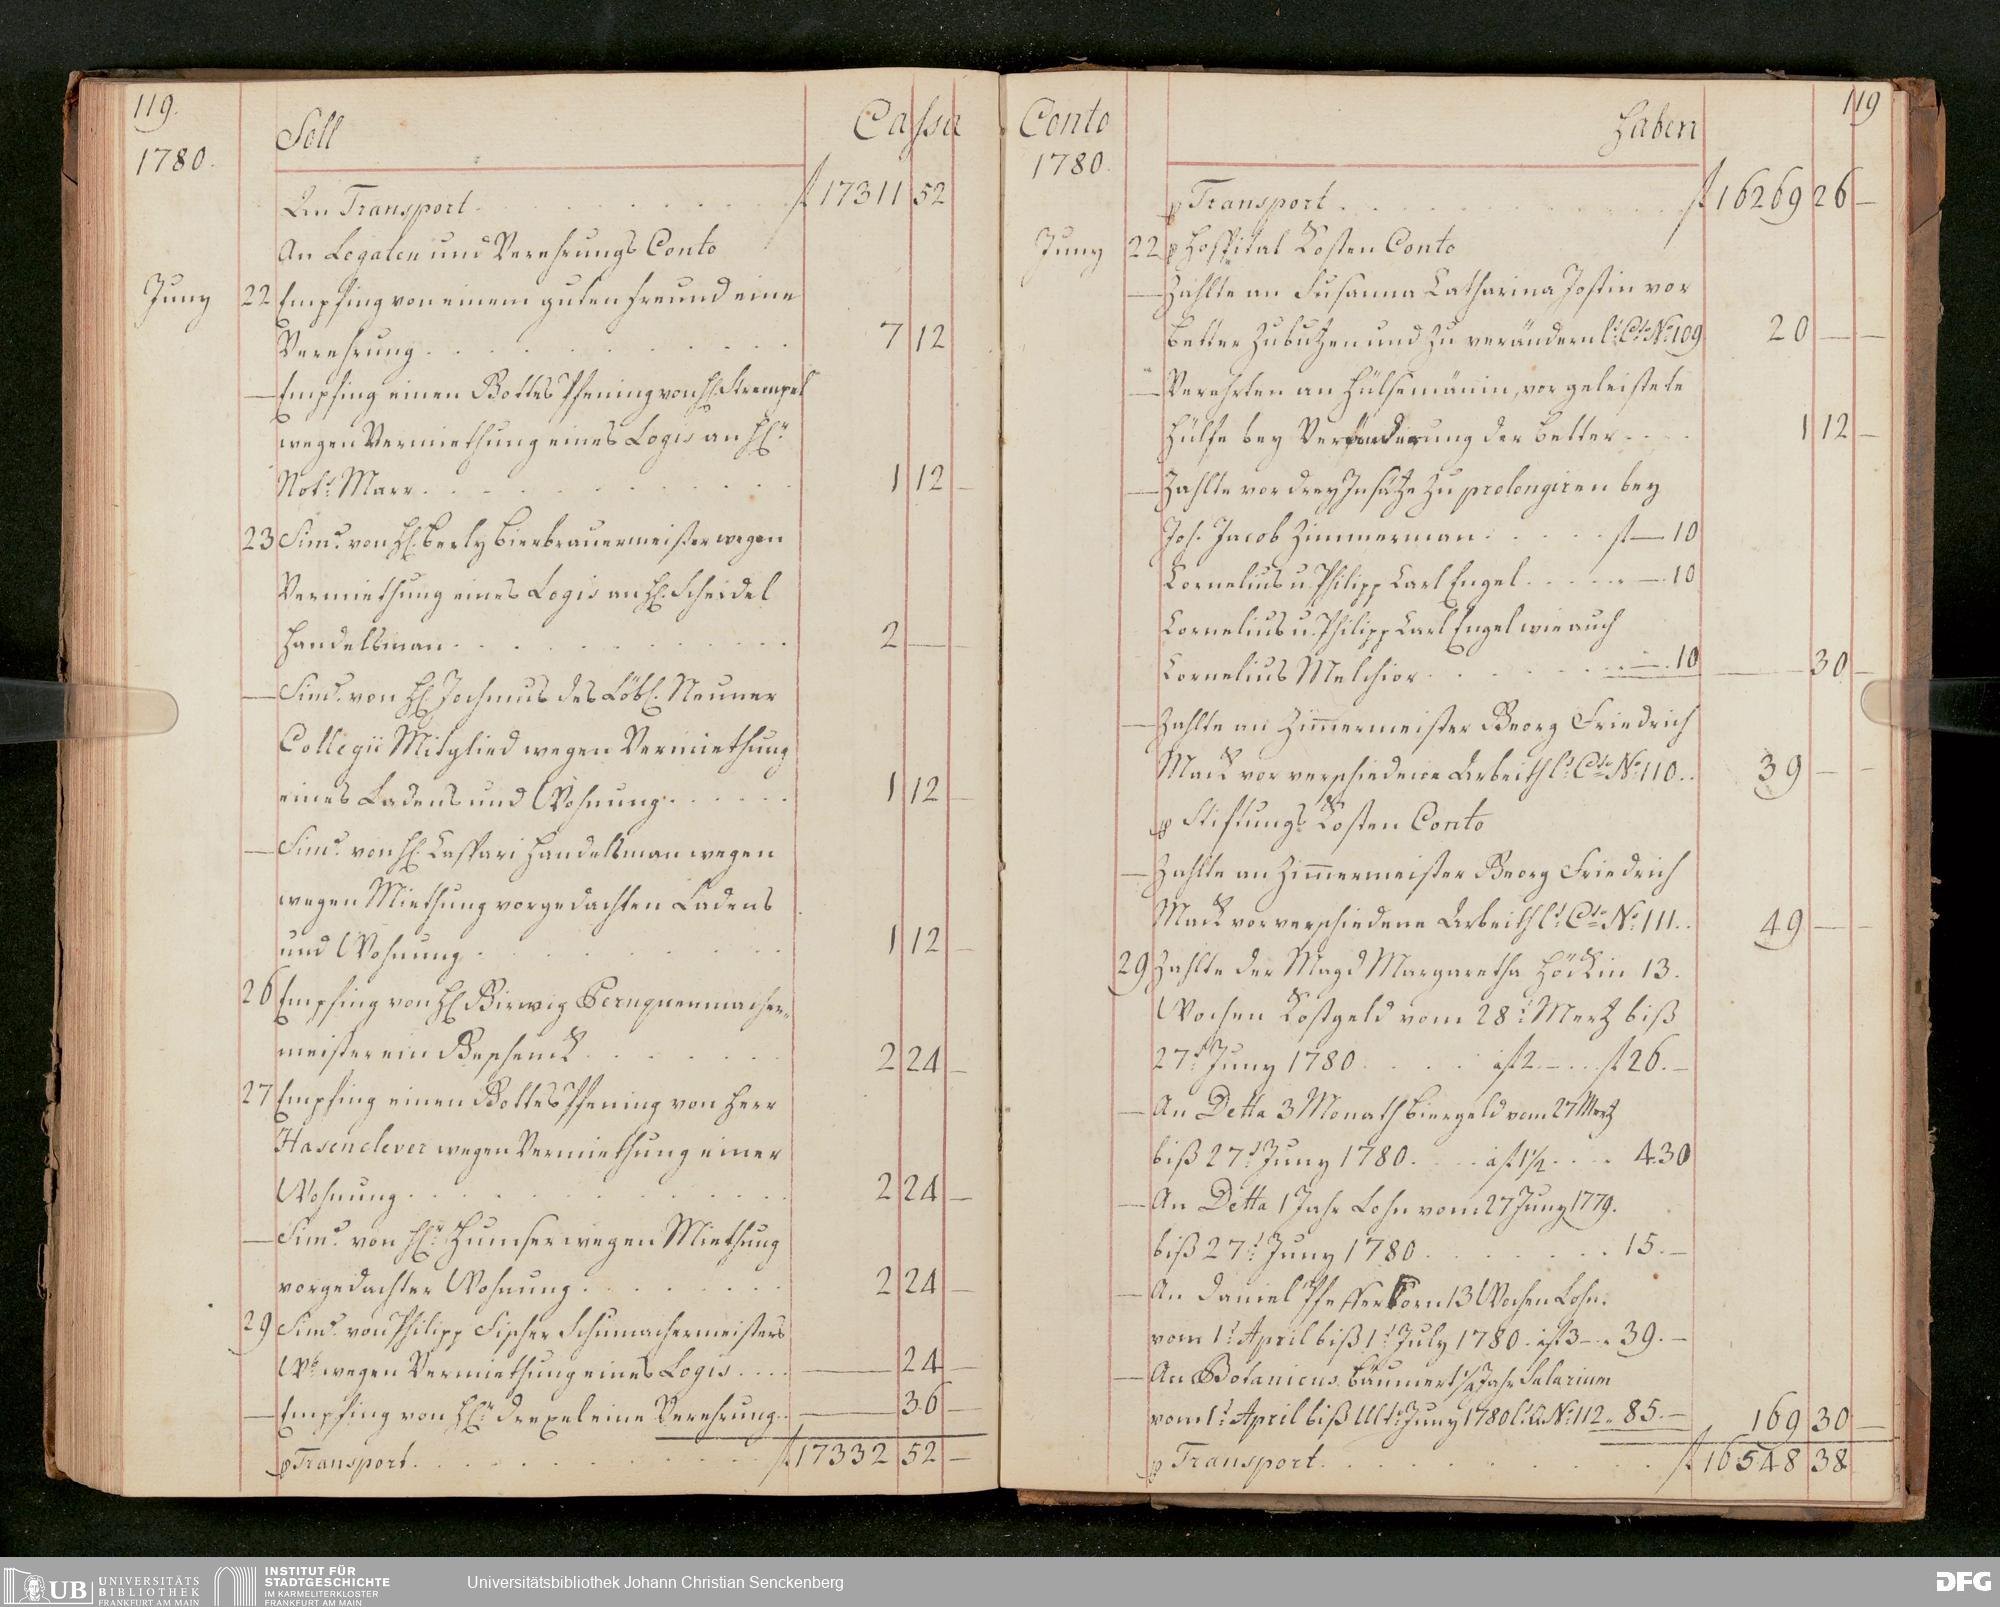 119.
1780.
Soll
Cassa
An Transport . . . . . . . . fl 17311 52
An Legaten und Verehrungs Conto
Juny 22 Empfing von einem guten Freund eine
Verehrung . . . . . . . . 7 12
— Empfing einen Gottes Pfening von H. Strempel
wegen Vermiethung eines Logis an H.r
Not.r Marx . . . . . . . . 1 12 —
23 Simd. von H. Berly Bierbrauermeister wegen
Vermiethung eines Logis an H. Scheidel
Handelsman . . . . . . . . 2 — —
— Simd. von H. Jochmus des Löbl. Neuner
Collegii Mitglied wegen Vermiethung
eines Ladens und Wohnung . . . . . 1 12 —
— Simd. von H. Caspari Handelsman wegen
wegen Miethung vorgedachten Ladens
und Wohnung . . . . . . . . 1 12 —
26 Empfing von H. Perruquenmacher-
meister ein Geschenck . . . . . . 2 24 —
27 Empfing einen Gottes Pfening von Herr
Hasenclever wegen Vermiethung einer
Wohnung . . . . . . . . 2 24 —
— Simd. von H.r Humser wegen Miethung
vorgedachter Wohnung . . . . . . 2 24 —
29 Simd. von Philipp Fischer Schumachermeisters
Wb. wegen Vermiethung eines Logis . . . . — 24 —
— Empfing von H.r Drexel eine Verehrung . . — 36 —
p Transport . . . . . . . . fl 17332 52 —
Conto
1780.
Haben
119
p Transport . . . . . . . . fl 16269 26 —
Juny 22 p Hospital Kosten Conto
— Zahlte an Susanna Catharina Jostin vor
Better zu butzen und zu verändern lt. Cto. No. 109 20 — —
— Verehrten an Hülsemänin, vor geleistete
Hülfe bey Veränderung der Better . . . . 1 12 —
— Zahlte vor drey Insätze zu prolongiren bey
Joh. Jacob Zimmerman . . . . . fl — 10
Cornelius u. Philipp Carl Engel . . . . . — . 10
Cornelius u. Philipp Carl Engel wie auch
Cornelius Melchior . . . . . . — . 10 — 30 —
— Zahlte an Zimmermeister Georg Friedrich
Mack vor verschiedene Arbeith lt. Cto. No. 110 . . 39 — —
p Stiftungs Kosten Conto
— Zahlte an Zimmermeister Georg Friedrich
Mack vor verschiedene Arbeith lt. Cto. No. 111 . . 49 — —
29 Zahlte der Magd Margaretha Höckin 13.
Wochen Kostgeld vom 28.t Mertz biß
27.t Juny 1780 . . . . . a fl 2. — . . . fl 26. —
— An Detta 3 Monath Biergeld vom 27 Mertz
biß 27.t Juny 1780 . . . . a fl 1½ . . . . 4.30
— An Detta 1 Jahr Lohn vom 27 Juny 1779.
biß 27.t Juny 1780 . . . . . . . 15. —
— An Daniel Pfefferkorn 13 Wochen Lohn.
vom 1.t April biß 1.t July 1780 . a fl 3 — . 39. —
— An Botanicus Bäumert ¼ Jahr Salarium
vom 1.t April biß Ult. Juny 1780 lt. Q. No. 112 . 85. — 169 30 —
p Transport . . . . . . . . fl 16548 38
UB UNIVERSITÄTS
BIBLIOTHEK
FRANKFURT AM MAIN
INSTITUT FÜR
STADTGESCHICHTE
IM KARMELITERKLOSTER
FRANKFURT AM MAIN
Universitätsbibliothek Johann Christian Senckenberg
DFG